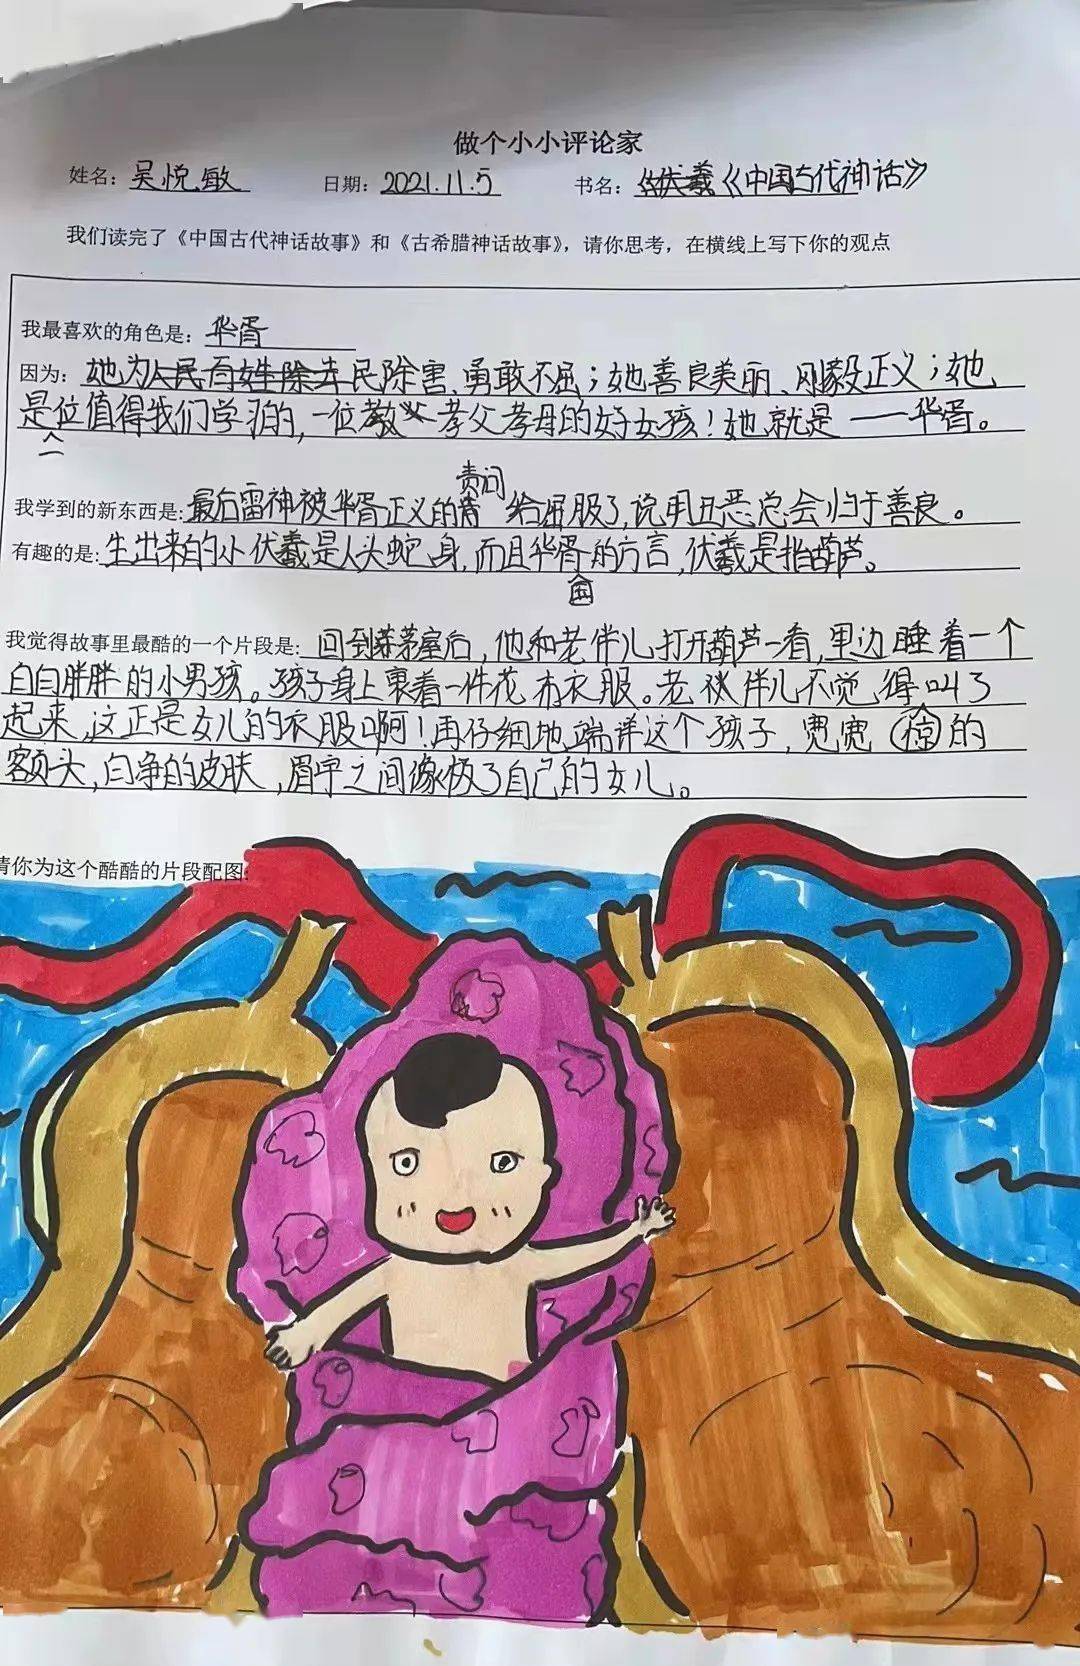 做个小小评论家
姓名：吴悦敏 日期：2021.11.5 书名：《伏羲《中国古代神话》
我们读完了《中国古代神话故事》和《古希腊神话故事》，请你思考，在横线上写下你的观点
我最喜欢的角色是：华胥
因为：她为人民百姓除去民除害、勇敢不屈；她善良美丽、刚毅正义；她
是一位值得我们学习的，一位教孝父孝母的好女孩！她就是——华胥。
责问
我学到的新东西是：最后雷神被华胥正义的给屈服了，说明丑恶总会归于善良。
有趣的是：生出来的小伏羲是人头蛇身，而且华胥国的方言，伏羲是指葫芦。
我觉得故事里最酷的一个片段是：回到茅屋后，他和老伴儿打开葫芦一看，里边睡着一个
白白胖胖的小男孩。孩子身上裹着一件花布衣服。老伙伴儿不觉得叫了
起来，这正是女儿的衣服啊！再仔细地端详这个孩子，宽宽的
额头，白净的皮肤，眉宇之间像极了自己的女儿。
请你为这个酷酷的片段配图：